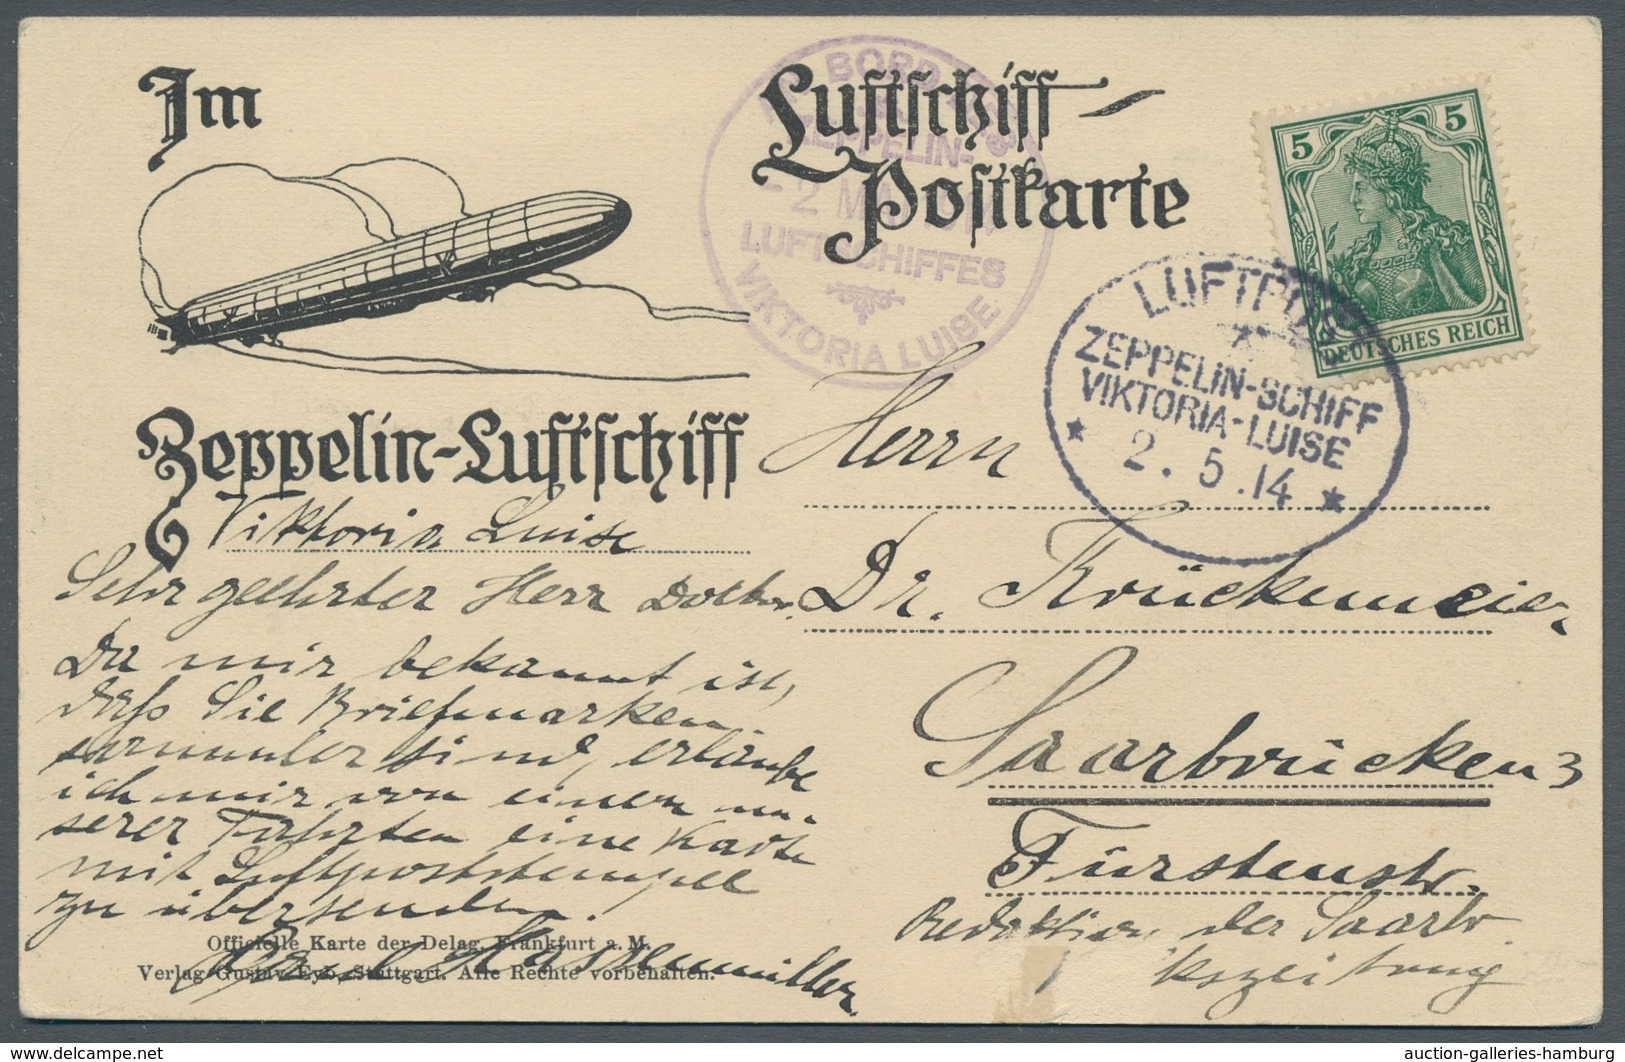 Im
Luftschiff-
Postkarte
BORD
ZEPPELIN-
2 MAI 1914
LUFTSCHIFFES
VIKTORIA LUISE
5 5
DEUTSCHES REICH
LUFTPOST
ZEPPELIN-SCHIFF
VIKTORIA-LUISE
* 2. 5. 14 *
Zeppelin-Luftschiff
Viktoria Luise
Sehr geehrter Herr Doktor.
Da mir bekannt ist,
daß Sie Briefmarken
sammler sind, erlaube
ich mir von einer un-
serer Fahrten eine Karte
mit Luftpoststempel
zu übersenden.
Officielle Karte der Delag, Frankfurt a. M.
Verlag Gustav Eyb, Stuttgart. Alle Rechte vorbehalten.
Herrn
Dr. Krückemeier
Saarbrücken 3
Fürstenstr.
Redaktion der Saarbr
kszeitung
auction-galleries-hamburg